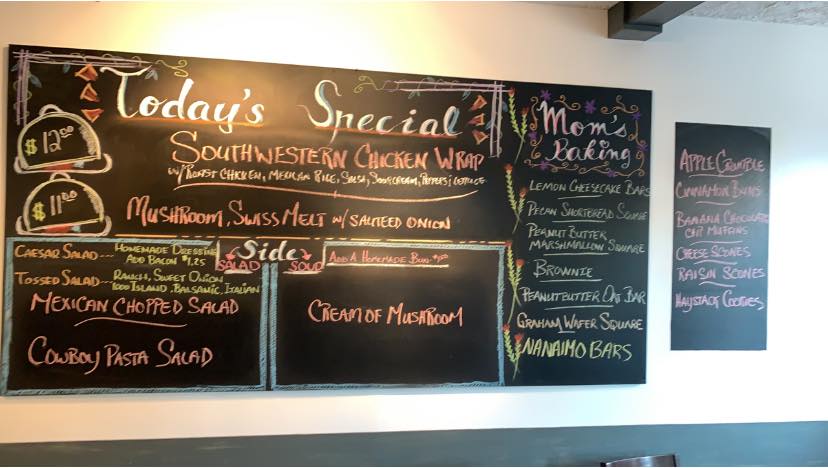 Today's Special
$12.00
SOUTHWESTERN CHICKEN WRAP
W/ROAST CHICKEN, MEXICAN RICE, SALSA, SOUR CREAM, PEPPERS, LETTUCE
$11.00
MUSHROOM, SWISS MELT W/ SAUTEED ONION
Side
SALAD
SOUP
CAESAR SALAD... HOMEMADE DRESSING
ADD BACON $1.25
TOSSED SALAD... RANCH, SWEET ONION
1000 ISLAND, BALSAMIC, ITALIAN
MEXICAN CHOPPED SALAD
COWBOY PASTA SALAD
ADD A HOMEMADE BUN
CREAM OF MUSHROOM
Mom's
Baking
LEMON CHEESECAKE BARS
PECAN SHORTBREAD SQUARE
PEANUT BUTTER
MARSHMALLOW SQUARE
BROWNIE
PEANUTBUTTER OAT BAR
GRAHAM WAFER SQUARE
NANAIMO BARS
APPLE CRUMBLE
CINNAMON BUNS
BANANA CHOCOLATE
CHIP MUFFINS
CHEESE SCONES
RAISIN SCONES
HAYSTACK COOKIES